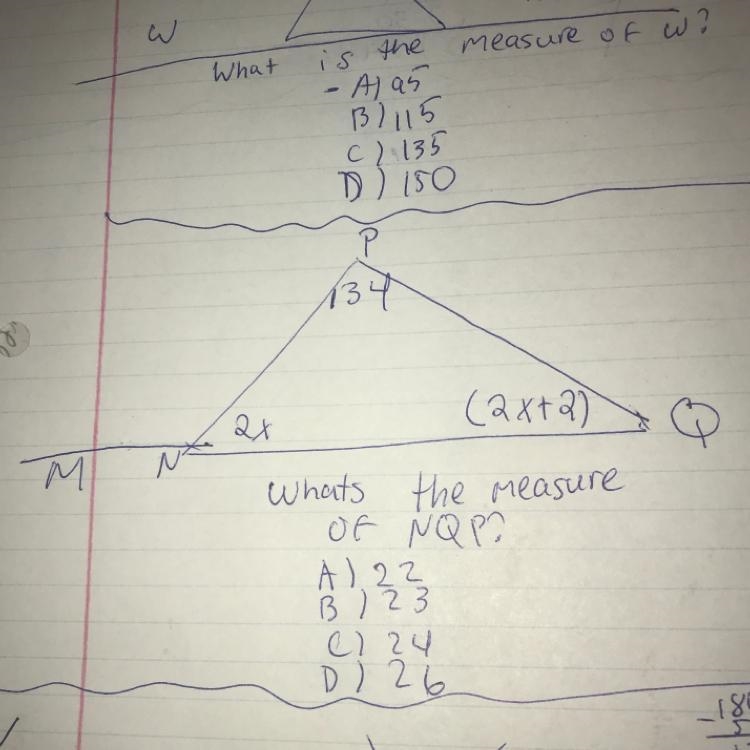 W
What is the measure of W?
- A) 95
B) 115
C) 135
D) 150
P
134
2x
(2x+2)
Q
M
N
Whats the measure
OF NQP?
A) 22
B) 23
C) 24
D) 26